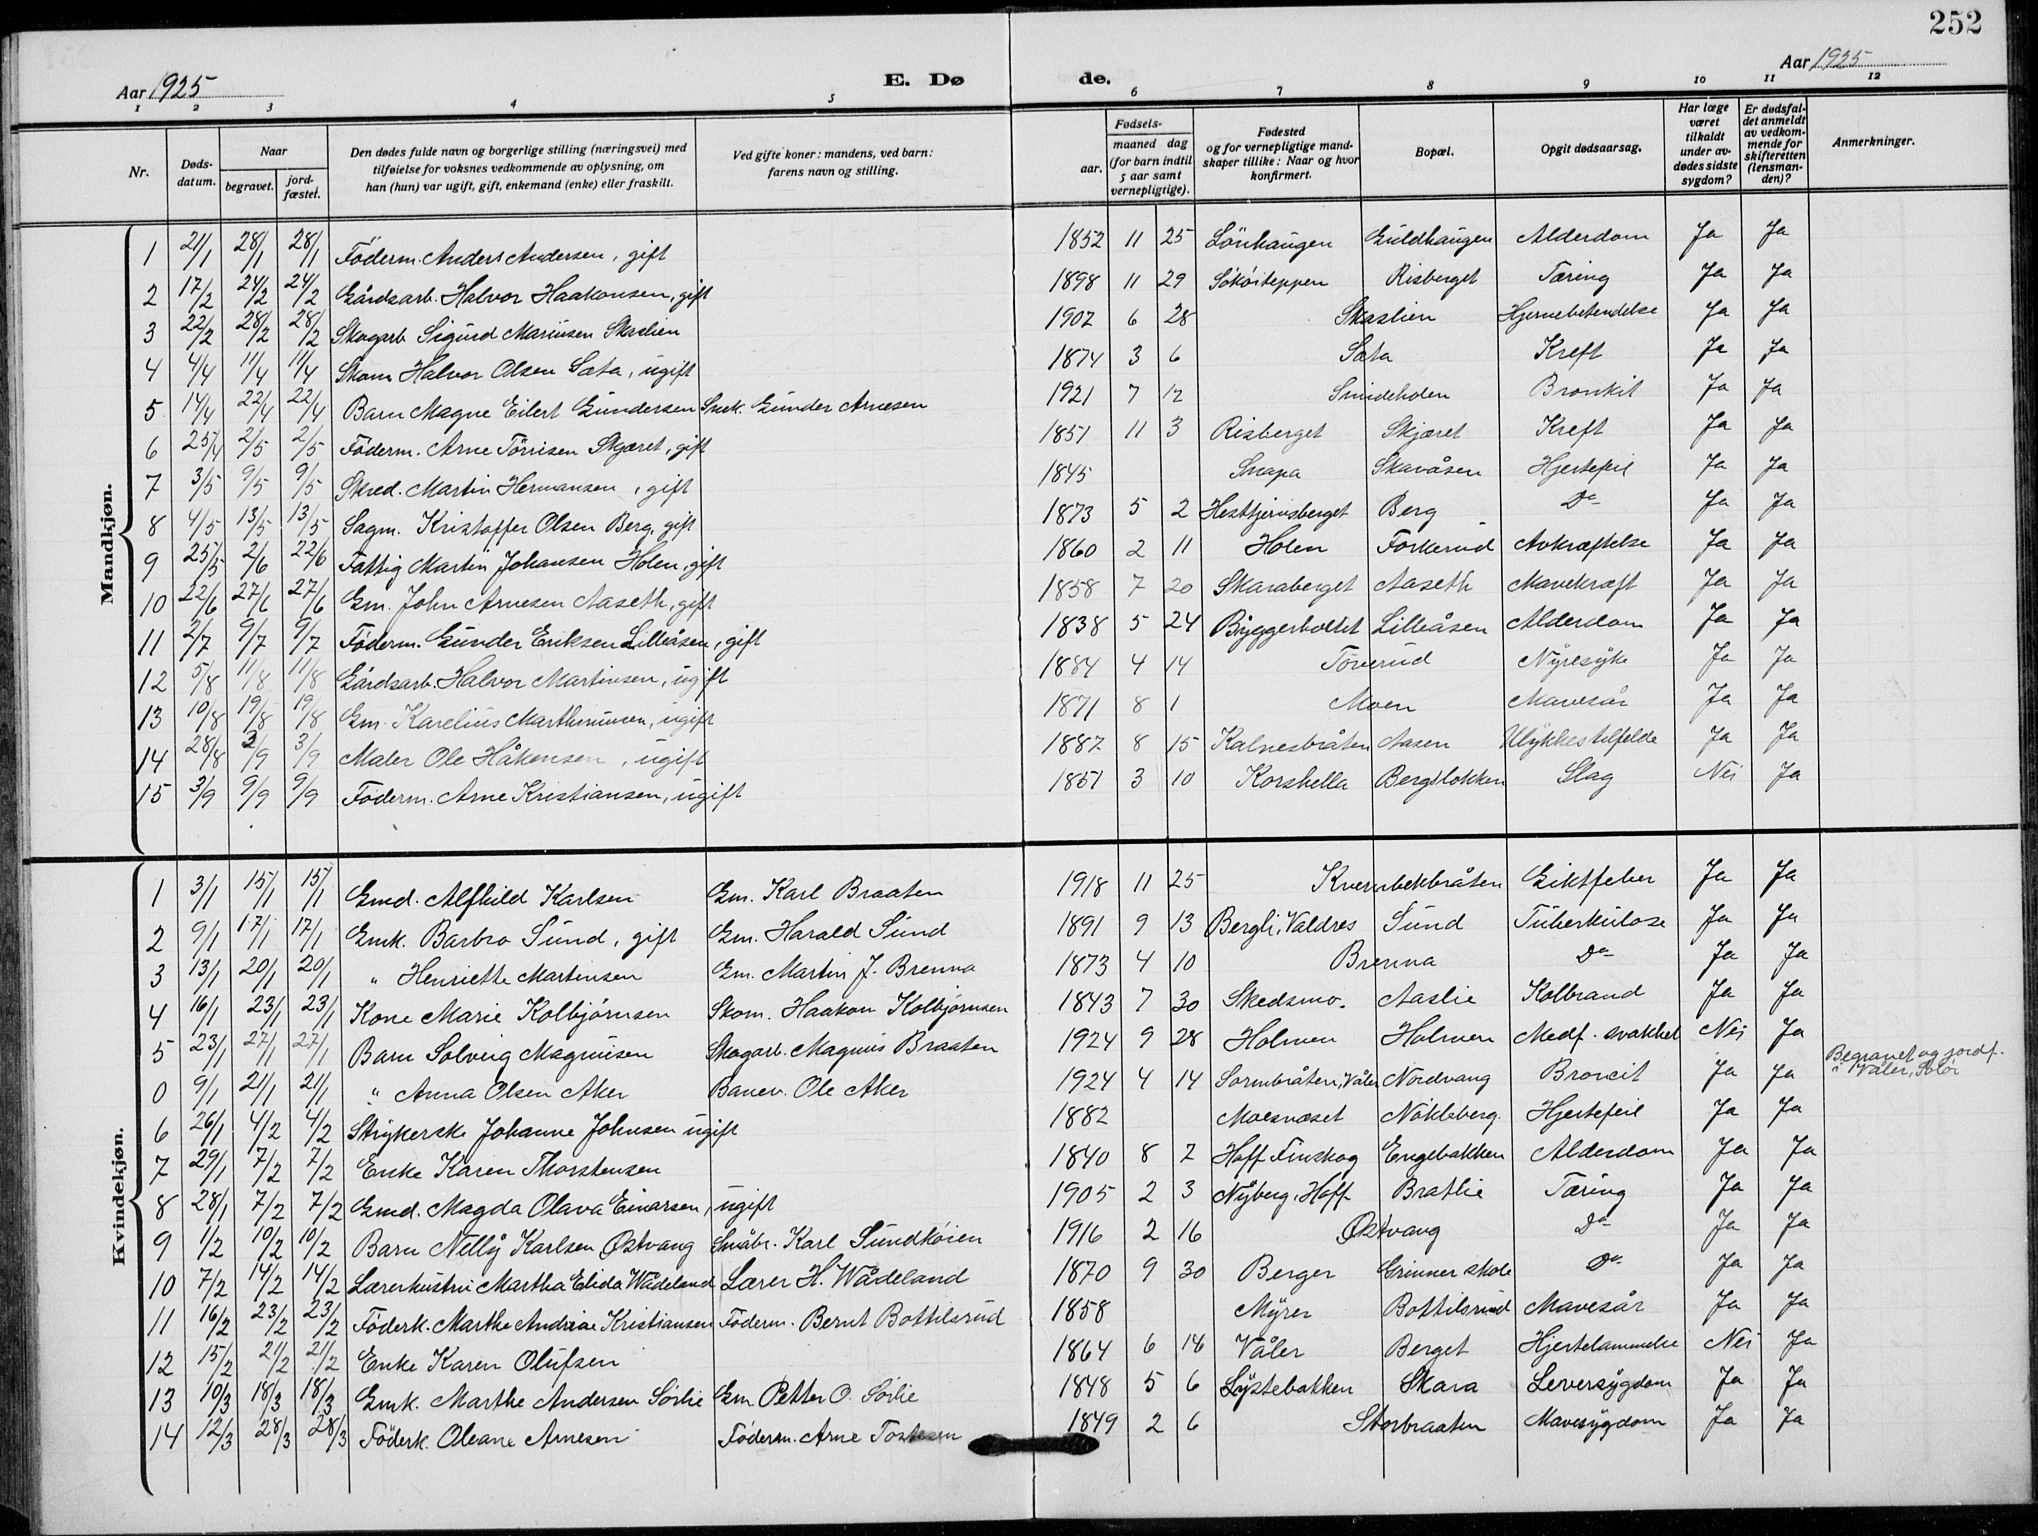 252
Aar 1925
E. Dø de.
Aar 1925
1 2 3 4 5 6 7 8 9 10 11 12
Nr.
Døds-datum.
Naar
begravet.
jord-fæstet.
Den dødes fulde navn og borgerlige stilling (næringsvei) med
tilføielse for voksnes vedkommende av oplysning, om
han (hun) var ugift, gift, enkemand (enke) eller fraskilt.
Ved gifte koner: mandens, ved barn:
farens navn og stilling.
Fødsels-
aar.
maaned dag
(for barn indtil
5 aar samt
vernepligtige).
Fødested
og for vernepligtige mand-
skaper tillike: Naar og hvor
konfirmert.
Bopæl.
Opgit dødsaarsag.
Har læge
været
tilkaldt
under av-
dødes sidste
sygdom?
Er dødsfal-
det anmeldt
av vedkom-
mende for
skifteretten
(lensman-
den)?
Anmerkninger.
Mandkjøn.
1 21/1 28/1 28/1 Föderm. Anders Andersen, gift 1852 11 25 Lönhaugen Guldhaugen Alderdom Ja Ja
2 17/2 24/2 24/2 Gårdsarb. Halvor Haakonsen, gift 1898 11 29 Sököiteppen Risberget Tæring Ja Ja
3 22/2 28/2 28/2 Skogarb. Sigurd Mariusen Skaslien 1907 6 28 Skaslien Hjernebetendelse Ja Ja
4 4/4 11/4 11/4 Skom. Halvor Olsen Sata, ugift 1874 3 6 Sata Kreft Ja Ja
5 14/4 22/4 22/4 Barn Magne Eilert Gundersen Snek. Gunder Arnesen 1921 7 12 Smideholen Bronkit Ja Ja
6 25/4 2/5 2/5 Föderm. Arne Törrisen Skjæret, gift 1851 11 3 Risberget Skjæret Kreft Ja Ja
7 3/5 9/5 9/5 Skred. Martin Hermansen, gift 1845 Snapa Skavåsen Hjertefeil Ja Ja
8 4/5 13/5 13/5 Sagm. Kristoffer Olsen Berg, gift 1873 5 2 Hesttjernsberget Berg Do Ja Ja
9 25/5 2/6 22/6 Fattig Martin Johansen Holen, gift 1860 2 11 Holen Forkerud Avkræftelse Ja Ja
10 22/6 27/6 27/6 Gm. John Arnesen Aaseth, gift 1858 7 20 Skaraberget Aaseth Mavekræft Ja Ja
11 2/7 9/7 9/7 Föderm. Gunder Eriksen Lilleåsen, gift 1838 5 24 Byggerboltet Lilleåsen Alderdom Ja Ja
12 5/8 11/8 11/8 Gårdsarb. Halvor Martinsen, ugift 1884 4 14 Töverud Nyresyke Ja Ja
13 10/8 19/8 19/8 Gm. Karelius Marthinusen, ugift 1871 8 1 Moen Mavesår Ja Ja
14 28/8 3/9 3/9 Maler Ole Håkensen, ugift 1887 8 15 Kalnesbråten Aasen Ulykkestilfelde Ja Ja
15 3/9 9/9 9/9 Föderm. Arne Kristiansen, ugift 1851 3 10 Korshella Bergslökken Slag Nei Ja
Kvindekjøn.
1 3/1 15/1 15/1 Gmd. Alfhild Karlsen Gm. Karl Braaten 1918 11 25 Kvernbekbråten Giktfeber Ja Ja
2 9/1 17/1 17/1 Gmk. Barbro Sund, gift Gm. Harald Sund 1891 9 13 Bergli, Valdres Sund Tuberkulose Ja Ja
3 13/1 20/1 20/1 " Henriette Martinsen Gm. Martin J. Brenna 1873 4 10 Brenna Do Ja Ja
4 16/1 23/1 23/1 Kone Marie Kolbjørnsen Skom. Haakon Kolbjørnsen 1843 7 30 Skedsmo. Aaslie Kolbrand Ja Ja
5 23/1 27/1 27/1 Barn Solveig Magnusen Skogarb. Magnus Braaten 1924 9 28 Holmen Holmen Medf. svakhet Nei Ja
0 9/1 21/1 21/1 " Anna Olsen Aker Banev. Ole Aker 1924 4 14 Sormbråten, Våler Nordvang Broncit Ja Ja Begravet og jordf. i Våler, Solör
6 26/1 4/2 4/2 Strykerske Johanne Johnsen ugift 1882 Moesnæset Nökleberg. Hjertefeil Ja Ja
7 29/1 7/2 7/2 Enke Karen Thorstensen 1840 8 7 Hoff Finskog Engebakken Alderdom Ja Ja
8 28/1 7/2 7/2 Gmd. Magda Olava Einarsen, ugift 1905 2 3 Nyberg, Hoff Bratlie Tæring Ja Ja
9 1/2 10/2 10/2 Barn Nelly Karlsen Østvang Småbr. Karl Sundköien 1916 2 16 Østvang Do Ja Ja
10 7/2 14/2 14/2 Lærerhustru Martha Elida Wådeland Lærer H. Wådeland 1870 9 30 Berger Grinner skole Do Ja Ja
11 16/2 23/2 23/2 Föderk. Marthe Andreae Kristiansen Föderm. Bernt Bottilsrud 1858 Myrer Bottilsrud Mavesår Ja Ja
12 15/2 21/2 21/2 Enke Karen Olufsen 1864 6 14 Våler Berget Hjertelammelse Nei Ja
13 10/3 18/3 18/3 Gmk. Marthe Andersen Sörlie Gm. Petter O. Sörlie 1848 5 6 Lystebakken Skara Leversygdom Ja Ja
14 12/3 28/3 28/3 Föderk. Oleane Arnesen Föderm. Arne Tostesen 1849 2 6 Storbraaten Mavesygdom Ja Ja